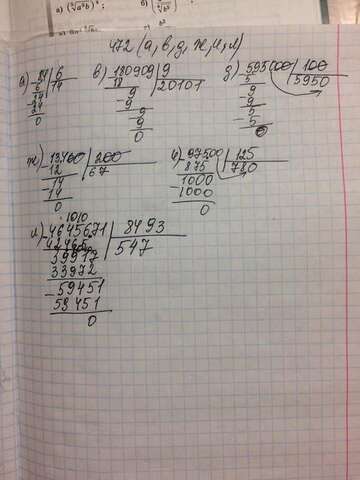 472 (а, в, д, ж, и, л)
а) 84 | 6
6 | 14
24
24
0
в) 180909 | 9
18 | 20101
9
9
9
9
0
д) 595000 | 100
5 | 5950
9
9
5
5
0
ж) 13400 | 200
12 | 67
14
14
0
и) 97500 | 125
875 | 780
1000
1000
0
1010
л) 4645671 | 8493
42465 | 547
39917
33972
59451
59451
0